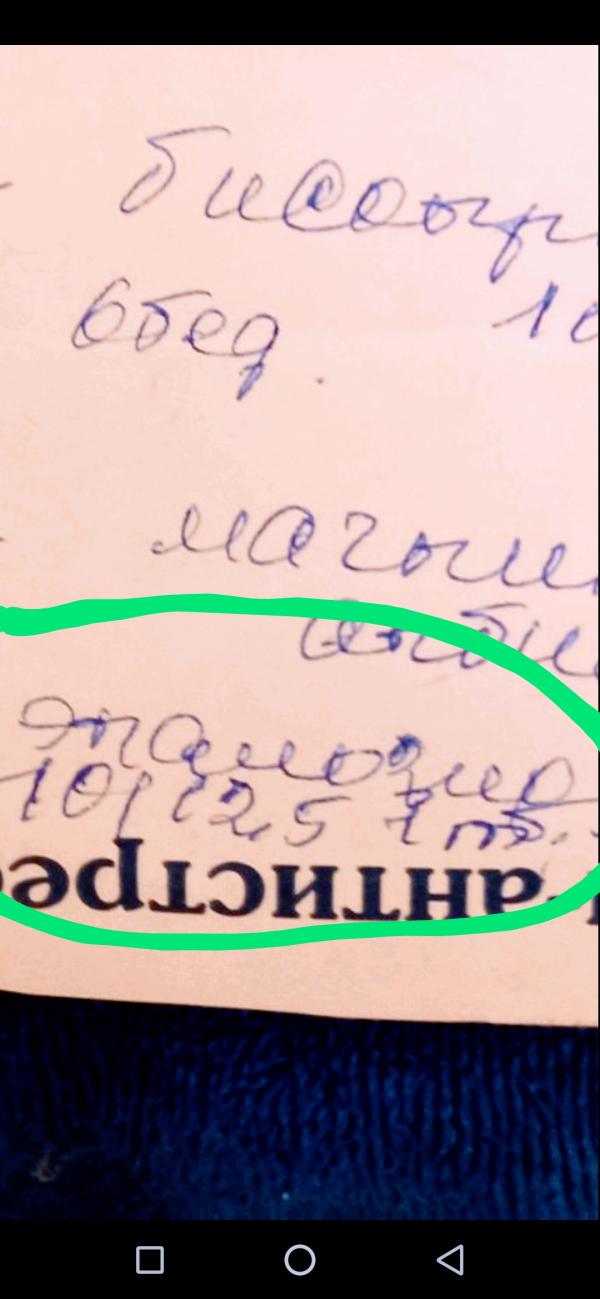 бисопр
обед. 10
магни
Эналозид
10/12,5 1 таб.
н-антистрес